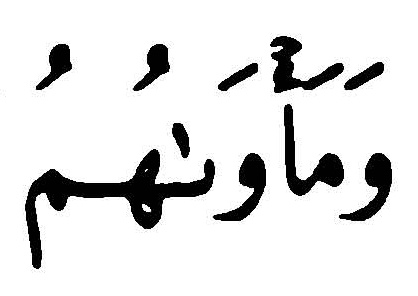 وَمَأْوَىٰهُمُ